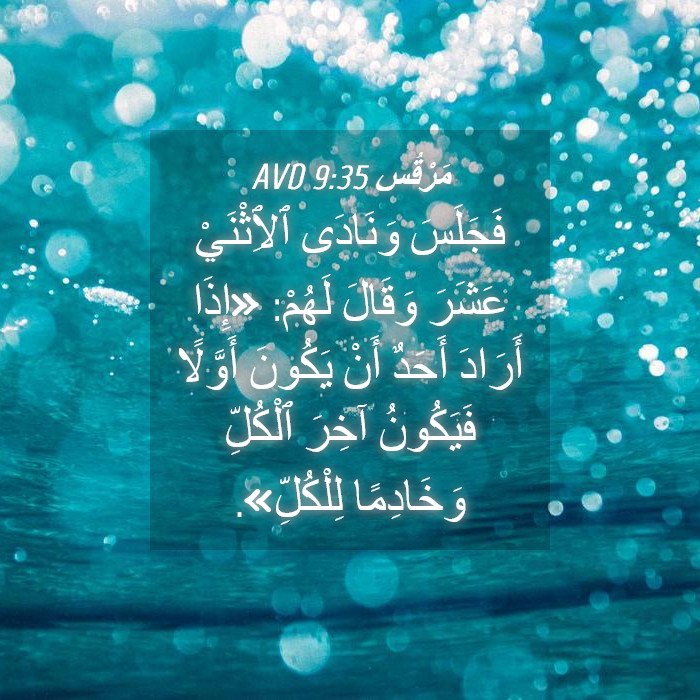 مَرْقُس 9:35 AVD
فَجَلَسَ وَنَادَى ٱلِٱثْنَيْ
عَشَرَ وَقَالَ لَهُمْ: «إِذَا
أَرَادَ أَحَدٌ أَنْ يَكُونَ أَوَّلًا
فَيَكُونُ آخِرَ ٱلْكُلِّ
وَخَادِمًا لِلْكُلِّ».